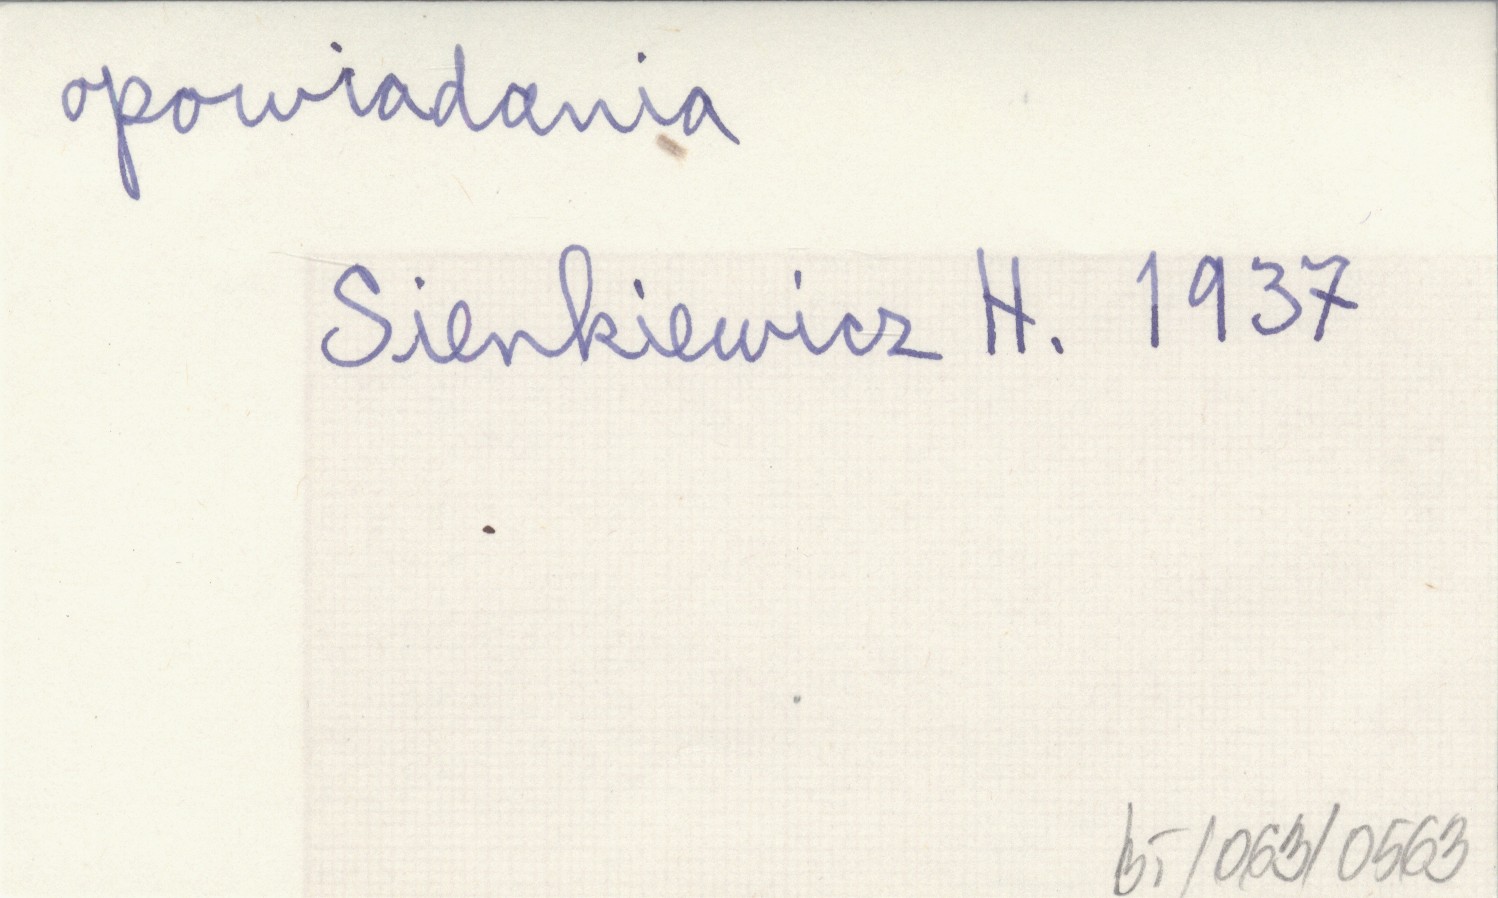 opowiadania
Sienkiewicz H. 1937
bī/063/0563